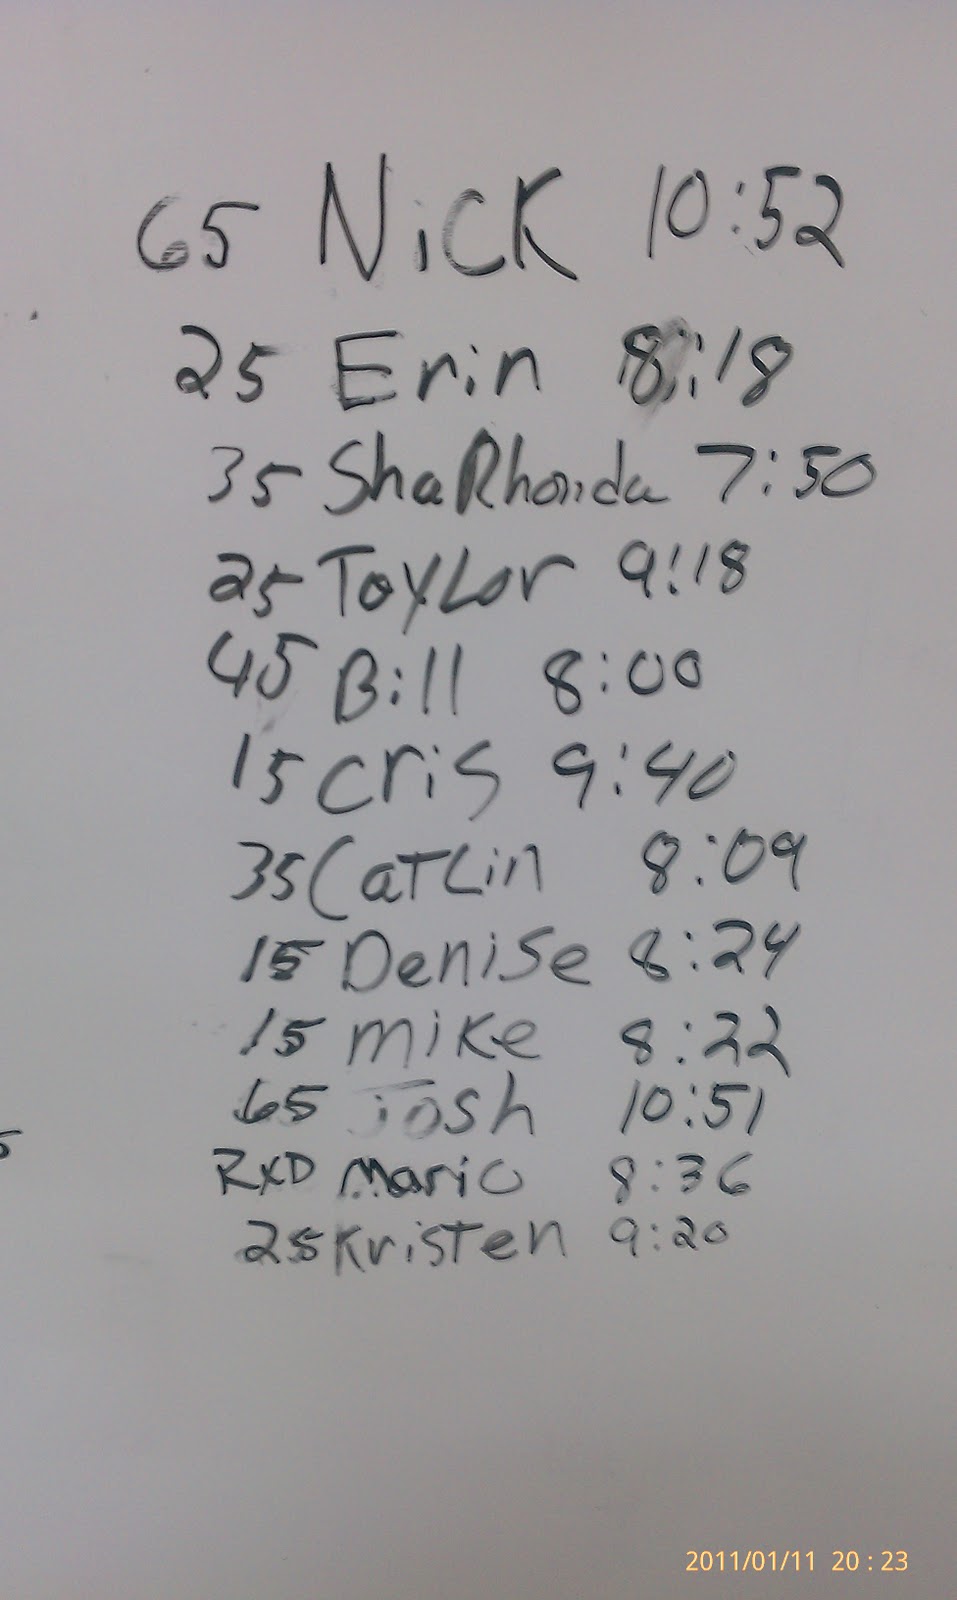 65 Nick 10:52
25 Erin 8:18
35 ShaRhonda 7:50
25 Taylor 9:18
45 Bill 8:00
15 cris 9:40
35 Catlin 8:09
15 Denise 8:24
15 mike 8:22
65 Josh 10:51
RXD Mario 8:36
25 Kristen 9:20
2011/01/11 20:23